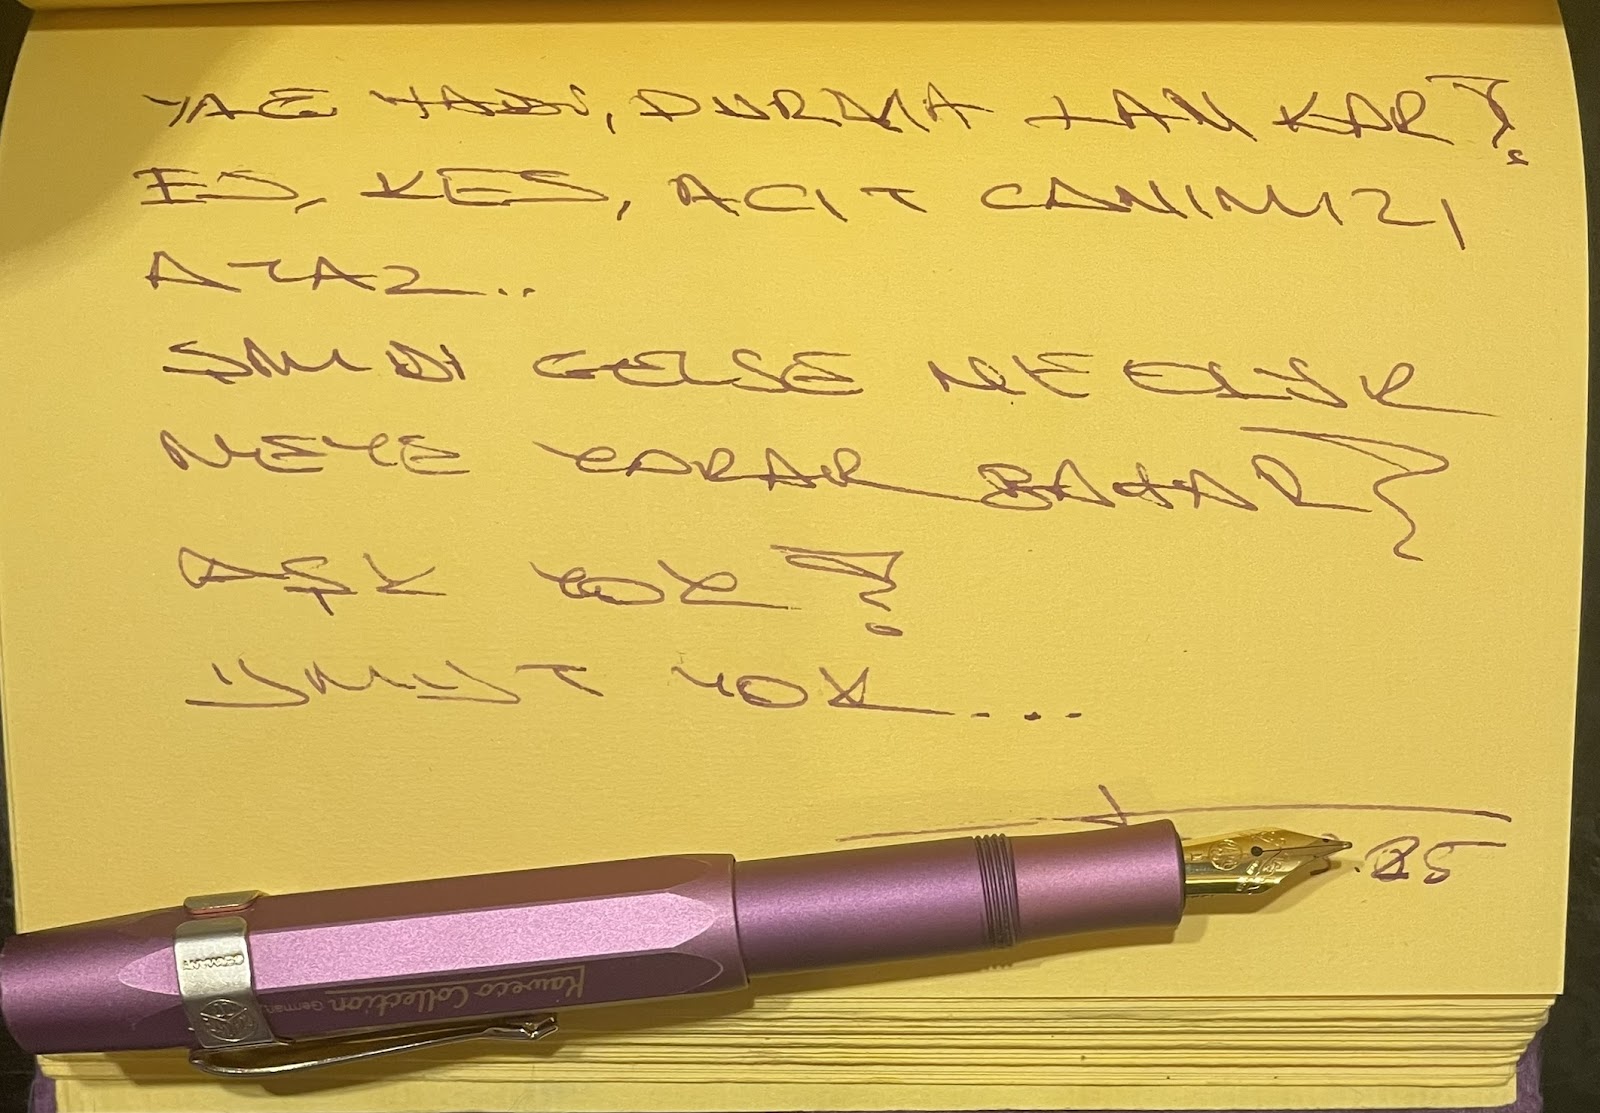 YAĞ HADİ, DURMA LAN KAR!
ES, KES, ACIT CANIMIZI,
AYAZ...
ŞİMDİ GELSE NE OLUR
NEYE YARAR BAHAR?
AŞK YOK!
ÜMÜT YOK...
.25
Kaweco Collection Germany
GERMANY